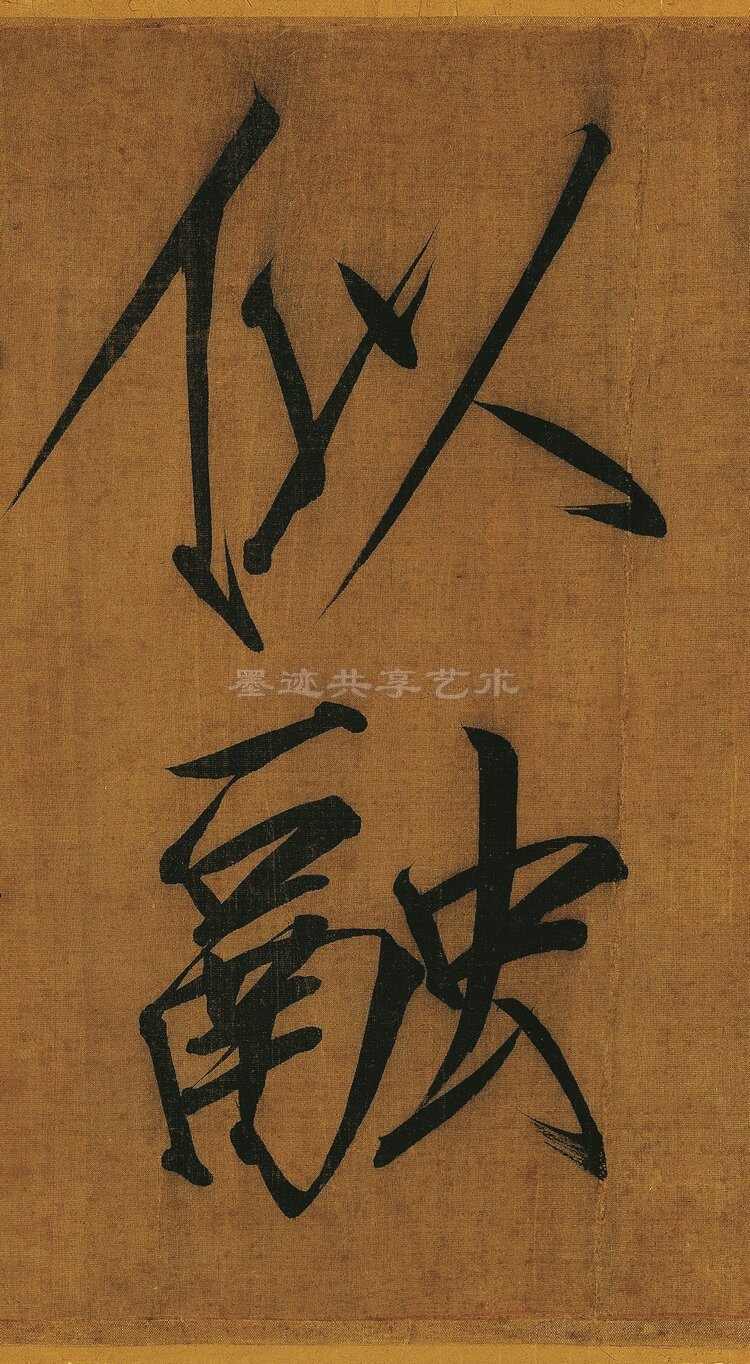 似
墨迹共享艺术
融